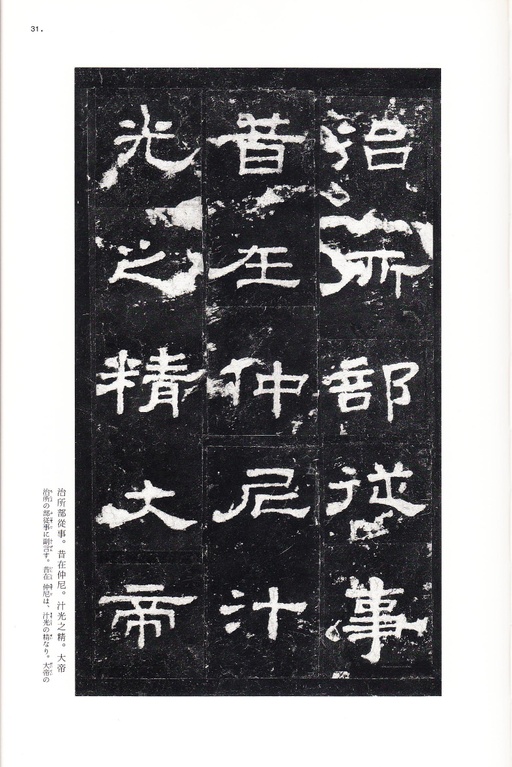 31.
治所部從事
昔在仲尼汁
光之精大帝
治所部從事。昔在仲尼。汁光之精。大帝
治所の部從事に副言す。昔在、仲尼は、汁光の精なり。大帝の